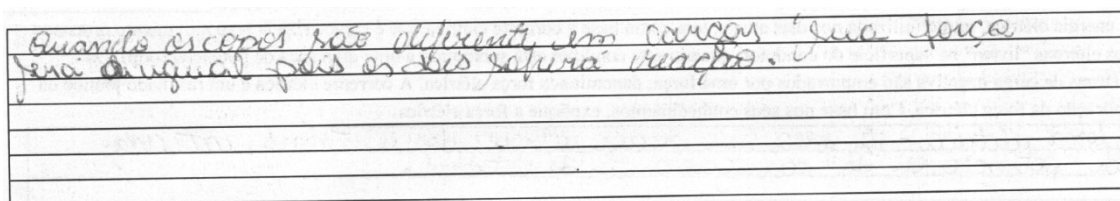 Quando os copos são diferente, em cargas sua força
sera a igual pois os dois sofrera reação.